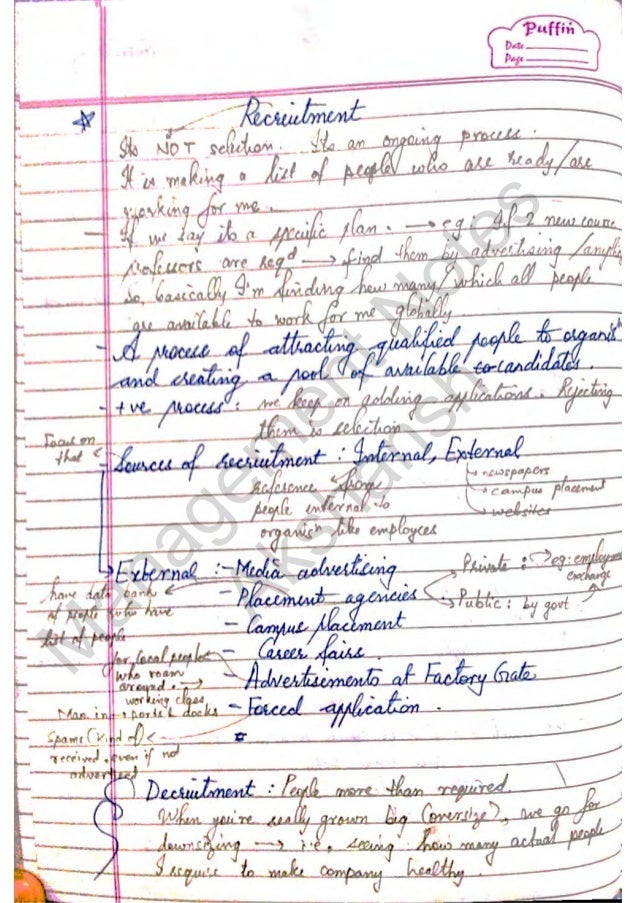 Puffin
Date
Page
Recruitment
Its NOT selection. Its an ongoing process.
It is making a list of people who are ready/are
working for me.
- If we say its a specific plan. → eg: If 2 new course
professors are reqd → find them by advertising/anything
So, basically I'm finding how many/which all people
are available to work for me globally.
- A process of attracting qualified people to organisn
and creating a pool of available to candidates.
- +ve process: we keep on adding applications. Rejecting
them is selection
Focus on
that
- Sources of recruitment : Internal, External
reference from
people internal to
organisn like employees
→ newspapers
→ campus placement
→ websites
External :- Media advertising
- Placement agencies
Private : eg: employment
exchange
Public : by govt
have data bank
of people who have
list of people
- Campus placement
- Career fairs.
for local people
who roam
around.
working class
- Advertisements at Factory Gate
Man in ports & docks
- Forced application.
Spams (kind of)
received, even if not
advertised
Decruitment : People more than required.
When you're really grown big (oversize), we go for
downsizing → i.e. seeing how many actual people
I require to make company healthy.
Management Notes
Akshansh